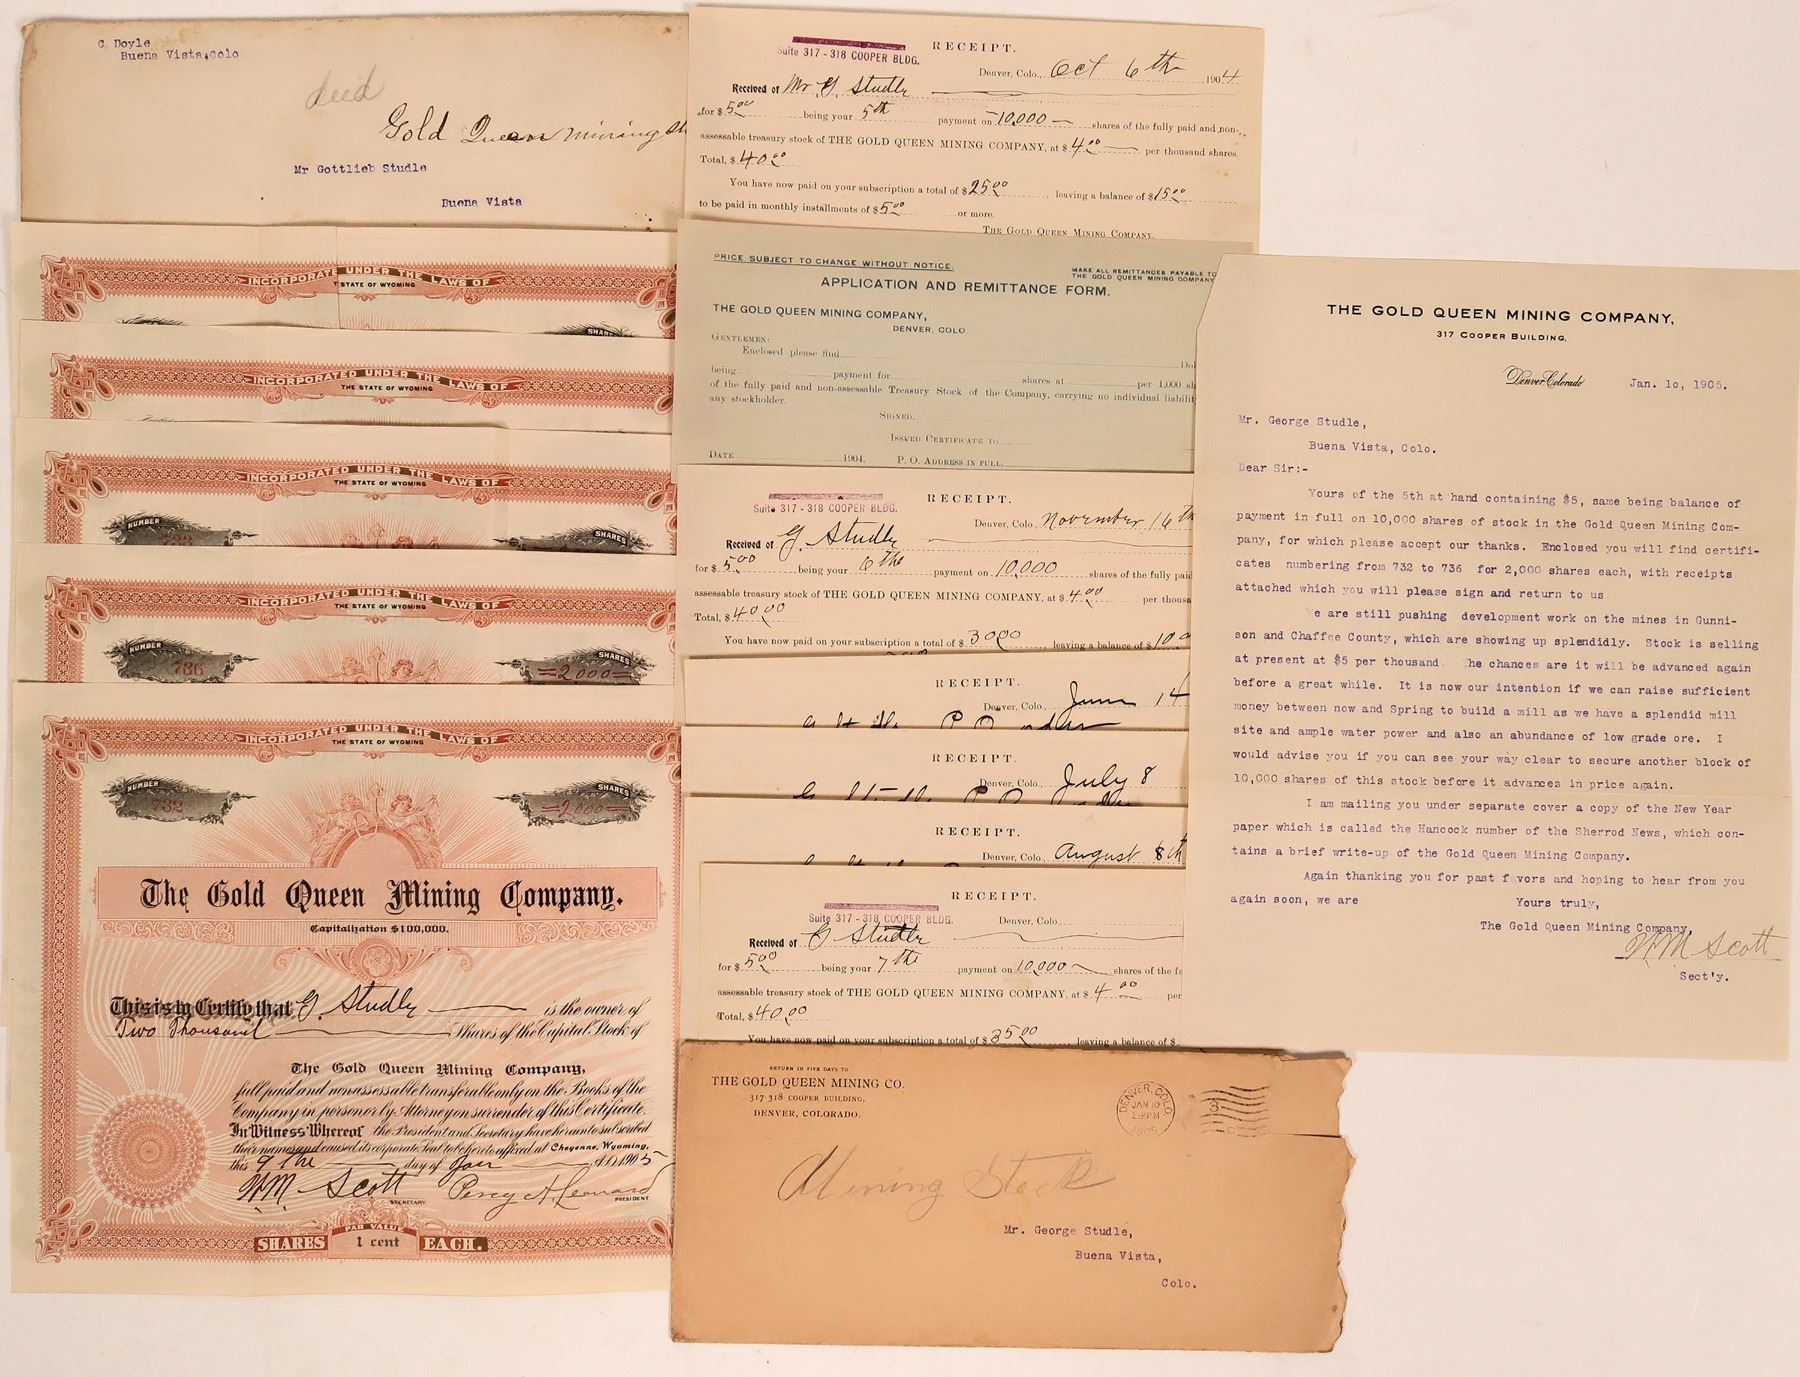 C Doyle
Buena Vista, Colo
deed
Gold Queen mining st
Mr Gottlieb Studle
Buena Vista
INCORPORATE UNDER THE LAWS OF
T STATE OF WYOMING
SHARES
INCORPORATED UNDER THE LAWS OF
THE STATE OF WYOMING
INCORPORATED UNDER THE LAWS OF
THE STATE OF WYOMING
NUMBER
SHARES
INCORPORATED UNDER THE LAWS OF
THE STATE OF WYOMING
NUMBER
736
SHARES
=2,000=
INCORPORATED UNDER THE LAWS OF
THE STATE OF WYOMING
NUMBER
732
SHARES
=2,000=
The Gold Queen Mining Company.
Capitalization $100,000.
This is to Certify that G. Studle is the owner of
Two Thousand Shares of the Capital Stock of
The Gold Queen Mining Company,
full paid and nonassessable transferable only on the Books of the
Company in person or by Attorney on surrender of this Certificate.
In Witness Whereof the President and Secretary have hereunto subscribed
their names and caused its corporate Seal to be hereto affixed at Cheyenne, Wyoming,
this 9 the day of Jan A.D. 1905
W.M. Scott
SECRETARY
Percy A. Leonard
PRESIDENT
PAR VALUE
SHARES 1 cent EACH.
RECEIPT.
Suite 317 - 318 COOPER BLDG.
Denver, Colo., Oct 6th 1904
Received of Mr G. Studle
for $5.00 being your 5th payment on 10,000 shares of the fully paid and non-
assessable treasury stock of THE GOLD QUEEN MINING COMPANY, at $4.00 per thousand shares.
Total, $40.00
You have now paid on your subscription a total of $25.00, leaving a balance of $15.00
to be paid in monthly installments of $5.00 or more.
THE GOLD QUEEN MINING COMPANY.
PRICE SUBJECT TO CHANGE WITHOUT NOTICE.
MAKE ALL REMITTANCES PAYABLE TO
THE GOLD QUEEN MINING COMPANY
APPLICATION AND REMITTANCE FORM.
THE GOLD QUEEN MINING COMPANY,
DENVER, COLO
GENTLEMEN:
Enclosed please find Dol
being payment for shares at per 1,000 sh
of the fully paid and non-assessable Treasury Stock of the Company, carrying no individual liabilit
any stockholder.
SIGNED,
ISSUED CERTIFICATE TO
DATE 1904. P. O. ADDRESS IN FULL,
RECEIPT.
Suite 317 - 318 COOPER BLDG.
Denver, Colo., November 16th
Received of G. Studle
for $5.00 being your 6the payment on 10,000 shares of the fully paid
assessable treasury stock of THE GOLD QUEEN MINING COMPANY, at $4.00 per thousa
Total, $40.00
You have now paid on your subscription a total of $30.00 leaving a balance of $10.0
RECEIPT.
Denver, Colo., June 14
RECEIPT.
Denver, Colo., July 8
RECEIPT.
Denver, Colo., August 8th
RECEIPT.
Suite 317 - 318 COOPER BLDG.
Denver, Colo.,
Received of G Studle
for $5.00 being your 7the payment on 10,000 shares of the fu
assessable treasury stock of THE GOLD QUEEN MINING COMPANY, at $4.00 per
Total, $40.00
You have now paid on your subscription a total of $35.00 leaving a balance of $
RETURN IN FIVE DAYS TO
THE GOLD QUEEN MINING CO.
317-318 COOPER BUILDING,
DENVER, COLORADO.
DENVER, COLO.
JAN 10
1905
Mining Stock
Mr. George Studle,
Buena Vista,
Colo.
THE GOLD QUEEN MINING COMPANY,
317 COOPER BUILDING.
Denver, Colorado Jan. 1o, 1905.
Mr. George Studle,
Buena Vista, Colo.
Dear Sir:-
Yours of the 5th at hand containing $5, same being balance of
payment in full on 10,000 shares of stock in the Gold Queen Mining Com-
pany, for which please accept our thanks. Enclosed you will find certifi-
cates numbering from 732 to 736 for 2,000 shares each, with receipts
attached which you will please sign and return to us.
We are still pushing development work on the mines in Gunni-
son and Chaffee County, which are showing up splendidly. Stock is selling
at present at $5 per thousand. The chances are it will be advanced again
before a great while. It is now our intention if we can raise sufficient
money between now and Spring to build a mill as we have a splendid mill
site and ample water power and also an abundance of low grade ore. I
would advise you if you can see your way clear to secure another block of
10,000 shares of this stock before it advances in price again.
I am mailing you under separate cover a copy of the New Year
paper which is called the Hancock number of the Sherrod News, which con-
tains a brief write-up of the Gold Queen Mining Company.
Again thanking you for past f vors and hoping to hear from you
again soon, we are Yours truly,
The Gold Queen Mining Company,
W.M Scott
Sect'y.